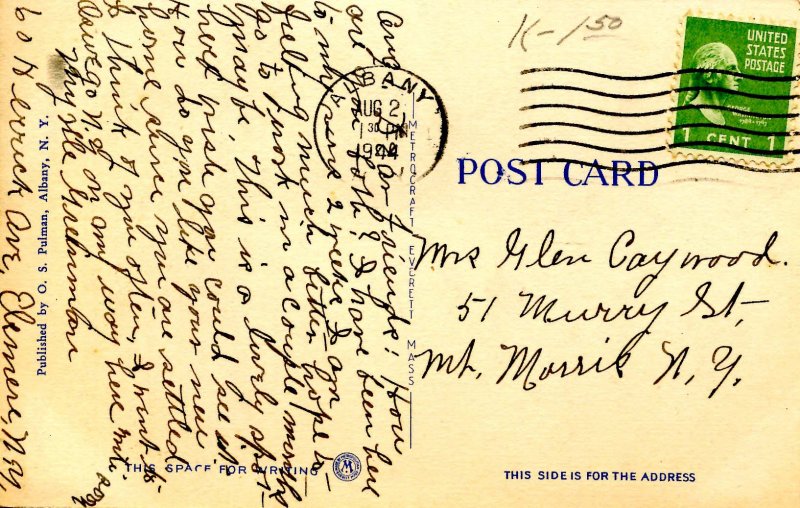 K-1.50
UNITED
STATES
POSTAGE
1 CENT 1
ALBANY
AUG 2
1 30 PM
1944
POST CARD
METROCRAFT EVERETT MASS
Mrs Glen Caywood.
51 Murry St,
Mt. Morris N.Y.
THIS SIDE IS FOR THE ADDRESS
THIS SPACE FOR WRITING
Published by O. S. Pulman, Albany, N. Y.
Dear Friends: How
are you both? I have been here
to my 2 weeks I am
feeling much better hope to
go to work in a couple months
maybe. This is a lovely spot
next wish you could see it.
How do you like your new
home since you are settled
I think of you often, I went to
Oswego N.Y. on my way here
60 Herrick Ave, Elsmere, N.Y,